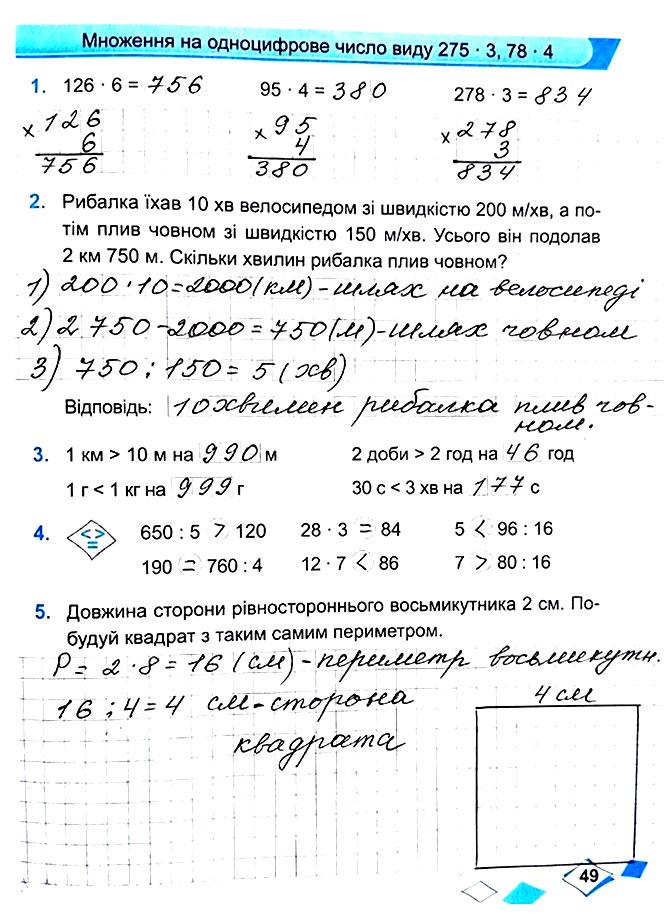 Множення на одноцифрове число виду 275 · 3, 78 · 4
1. 126 · 6 = 756 95 · 4 = 380 278 · 3 = 834
× 126 × 95 × 278
6 4 3
756 380 834
2. Рибалка їхав 10 хв велосипедом зі швидкістю 200 м/хв, а по-
тім плив човном зі швидкістю 150 м/хв. Усього він подолав
2 км 750 м. Скільки хвилин рибалка плив човном?
1) 200 · 10 = 2000 (км) - шлях на велосипеді
2) 2 750 - 2000 = 750 (м) - шлях човном
3) 750 : 150 = 5 (хв)
Відповідь: 10 хвилин рибалка плив чов-
ном.
3. 1 км > 10 м на 990 м 2 доби > 2 год на 46 год
1 г < 1 кг на 999 г 30 с < 3 хв на 177 с
4. < > = 650 : 5 > 120 28 · 3 = 84 5 < 96 : 16
190 = 760 : 4 12 · 7 < 86 7 > 80 : 16
5. Довжина сторони рівностороннього восьмикутника 2 см. По-
будуй квадрат з таким самим периметром.
P = 2 · 8 = 16 (см) - периметр восьмикутн.
16 : 4 = 4 см - сторона 4 см
квадрата
49